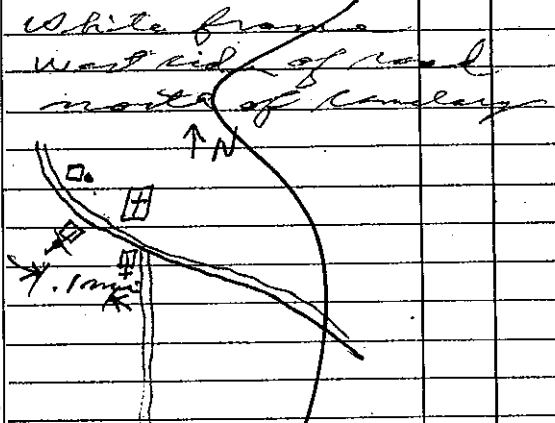 White frame
west side of road
north of cemetery
N
.1 mi